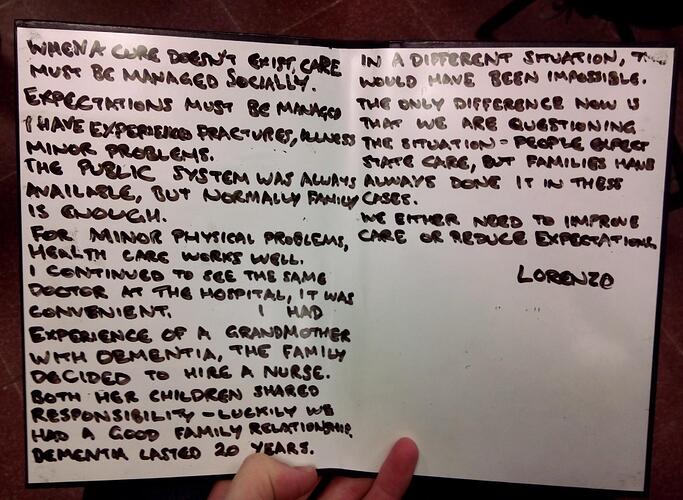 WHEN A CURE DOESN'T EXIST, CARE
MUST BE MANAGED SOCIALLY.
EXPECTATIONS MUST BE MANAGED
I HAVE EXPERIENCED FRACTURES, ILLNESS
MINOR PROBLEMS.
THE PUBLIC SYSTEM WAS ALWAYS
AVAILABLE, BUT NORMALLY FAMILY
IS ENOUGH.
FOR MINOR PHYSICAL PROBLEMS,
HEALTH CARE WORKS WELL.
I CONTINUED TO SEE THE SAME
DOCTOR AT THE HOSPITAL, IT WAS
CONVENIENT. I HAD
EXPERIENCE OF A GRANDMOTHER
WITH DEMENTIA, THE FAMILY
DECIDED TO HIRE A NURSE.
BOTH HER CHILDREN SHARED
RESPONSIBILITY - LUCKILY WE
HAD A GOOD FAMILY RELATIONSHIP.
DEMENTIA LASTED 20 YEARS.
IN A DIFFERENT SITUATION,
WOULD HAVE BEEN IMPOSSIBLE.
THE ONLY DIFFERENCE NOW IS
THAT WE ARE QUESTIONING
THE SITUATION - PEOPLE EXPECT
STATE CARE, BUT FAMILIES HAVE
ALWAYS DONE IT IN THESE
CASES.
WE EITHER NEED TO IMPROVE
CARE OR REDUCE EXPECTATIONS.
LORENZO